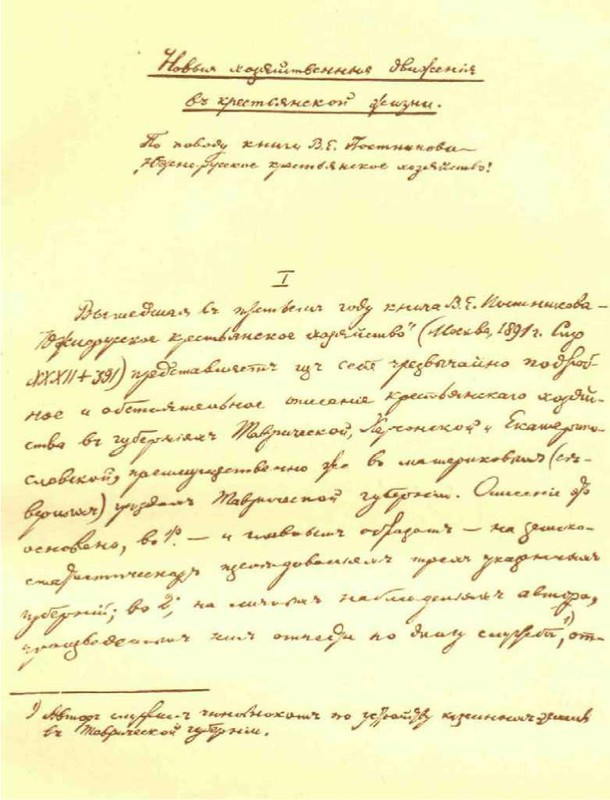 Новыя хозяйственныя движенія
въ крестьянской жизни.
По поводу книги В.Е. Постникова —
„Южно-русское крестьянское хозяйство"
I
Вышедшая въ третьемъ году книга В.Е. Постникова —
„Южнорусское крестьянское хозяйство" (Москва, 1891 г. Стр
XXXII+391) представляетъ изъ себя чрезвычайно подроб-
ное и обстоятельное описаніе крестьянскаго хозяй-
ства въ губерніяхъ Таврической, Херсонской и Екатерино-
славской, преимущественно же въ материковыхъ (сѣ-
верныхъ) уѣздахъ Таврической губерніи. Описаніе это
основано, во 1х. — и главнымъ образомъ — на земско-
статистическихъ изслѣдованіяхъ трехъ указанныхъ
губерній; во 2х, на личныхъ наблюденіяхъ автора,
произведенныхъ имъ отчасти по долгу службы¹⁾, от-
¹⁾ Авторъ служилъ чиновникомъ по устройству казенныхъ земель
въ Таврической губерніи.